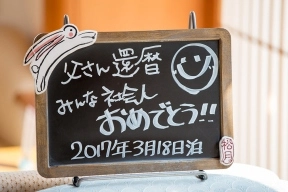 父さん還暦
みんな社会人
おめでとう!!
2017年3月18日泊
松月